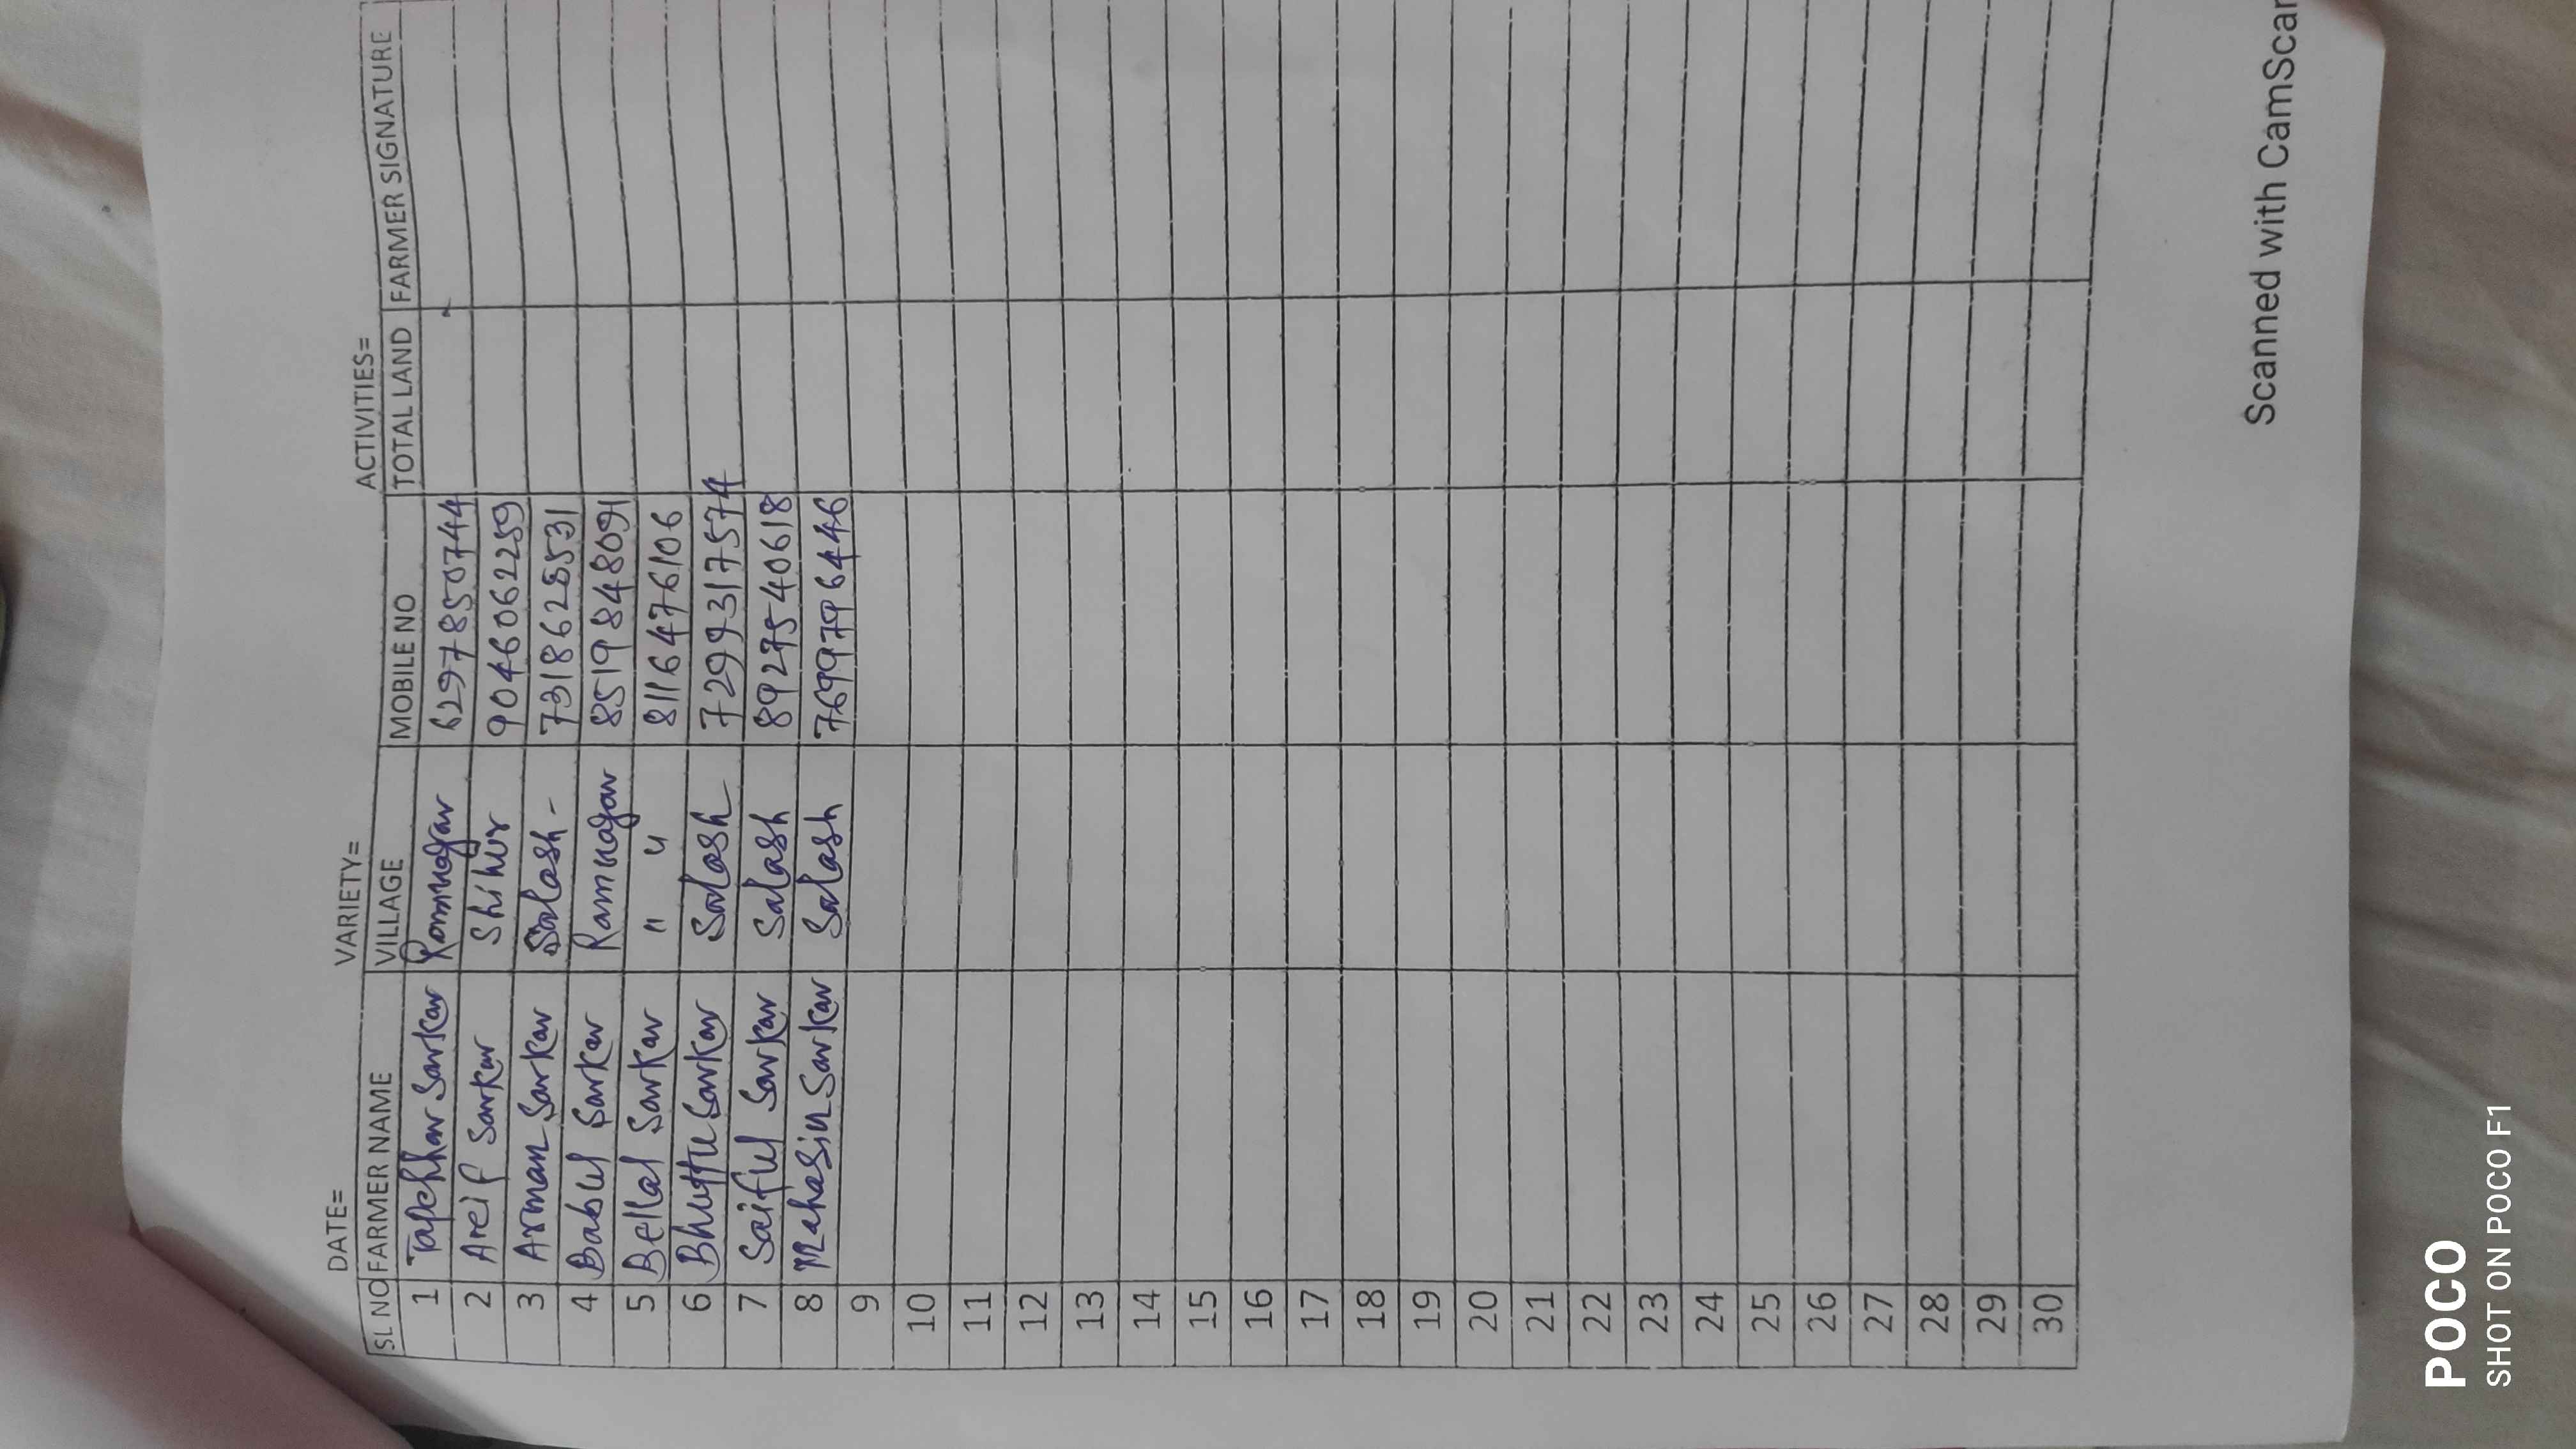 DATE= VARIETY= ACTIVITIES=
SL NO FARMER NAME VILLAGE MOBILE NO TOTAL LAND FARMER SIGNATURE
1 Tapehhar Sarkar Ramnagar 6297850744
2 Areif Sarkar Shihur 9046062259
3 Arman Sarkar Salash - 7318625531
4 Babul Sarkar Ramnagar 8519848091
5 Bellal Sarkar " " 8116476106
6 Bhuttu Sarkar Salash 7299317574
7 Saiful Sarkar Salash 8927540618
8 Mahasin Sarkar Salash 7699796446
9
10
11
12
13
14
15
16
17
18
19
20
21
22
23
24
25
26
27
28
29
30
Scanned with CamScan
POCO
SHOT ON POCO F1